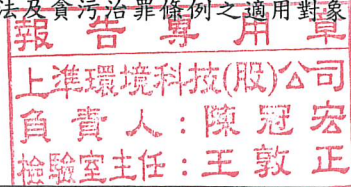 法及貪污治罪條例之適用對象
報告專用章
上準環境科技(股)公司
負責人：陳冠宏
檢驗室主任：王敦正